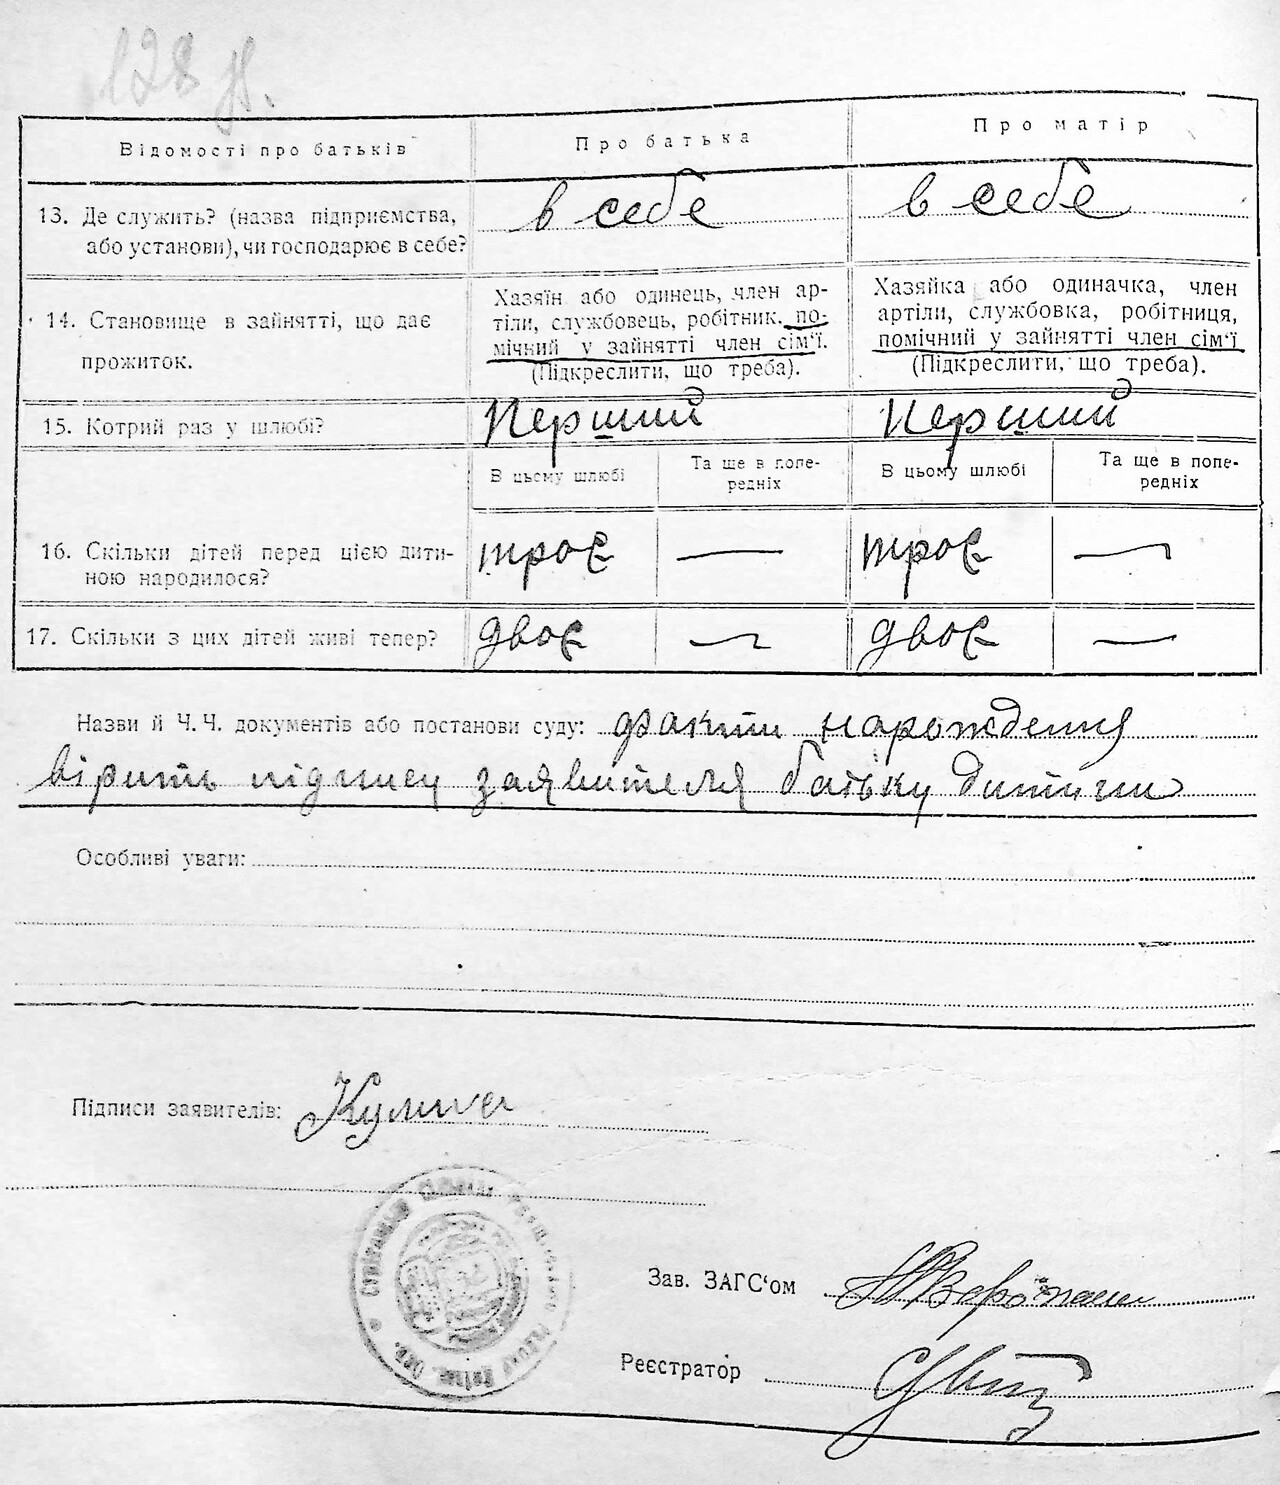 128
Відомості про батьків
Про батька
Про матір
13. Де служить? (назва підприємства,
або установи), чи господарює в себе?
в себе
в себе
14. Становище в зайнятті, що дає
прожиток.
Хазяїн або одинець, член ар-
тіли, службовець, робітник, по-
мічний у зайнятті член сім'ї.
(Підкреслити, що треба).
Хазяйка або одиначка, член
артіли, службовка, робітниця,
помічний у зайнятті член сім'ї
(Підкреслити, що треба).
15. Котрий раз у шлюбі?
Перший
Перший
В цьому шлюбі
Та ще в попе-
редніх
В цьому шлюбі
Та ще в попе-
редніх
16. Скільки дітей перед цією дити-
ною народилося?
троє
—
троє
—
17. Скільки з цих дітей живі тепер?
двоє
—
двоє
—
Назви й Ч. Ч. документів або постанови суду: факти нарождения
вірить підпису заявителя батьку дитини
Особливі уваги:
Підписи заявителів:
Зав. ЗАГС'ом
Реєстратор